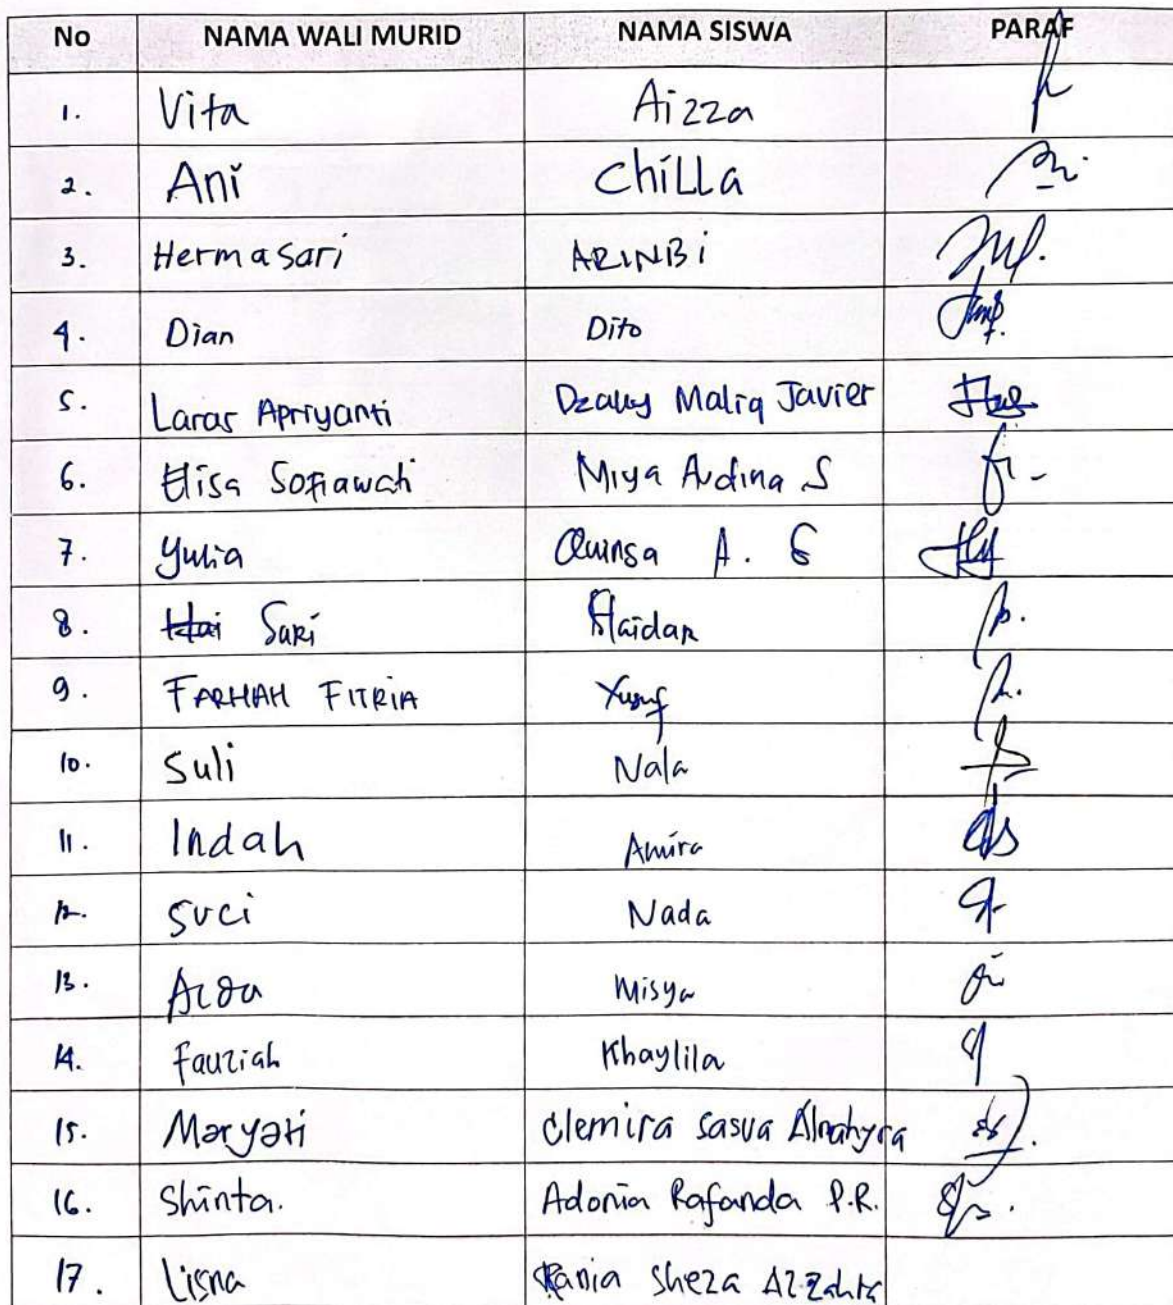 No NAMA WALI MURID NAMA SISWA PARAF
1. Vita Aizza
2. Ani ChiLLa
3. Hermasari ARINBi
4. Dian Dito
5. Laras Apriyanti Dzaky Maliq Javier
6. Elisa Sofiawati Miya Ardina S
7. Yulia Quinsa A. G
8. Sari Haidar
9. FARHAH FITRIA Yusuf
10. Suli Nala
11. Indah Amira
12. Suci Nada
13. Aida Misya
14. Fauziah Khaylila
15. Maryati Clemira Sasva Alnahyra
16. Shinta. Adonia Rafanda P.R.
17. Lisna Rania Sheza Azzahra